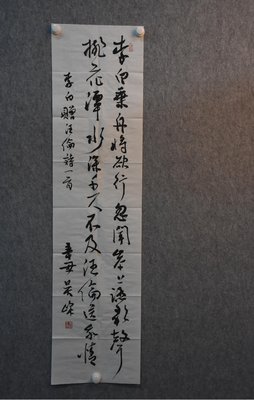 李白乘舟將欲行忽聞岸上踏歌聲
桃花潭水深千尺不及汪倫送我情
李白贈汪倫詩一首
辛丑吴